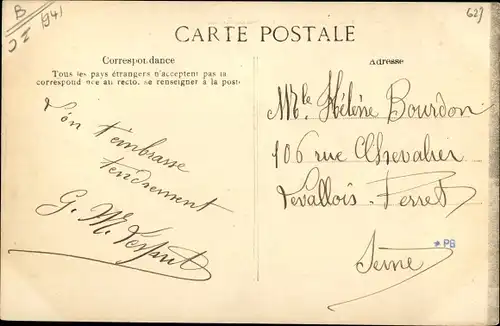 B
941
627
CARTE POSTALE
Correspondance
Tous les pays étrangers n'acceptent pas la
correspondance au recto. se renseigner à la poste
Adresse
L'on t'embrasse
tendrement
G. M.
Mlle Hélène Bourdon
106 rue Chevalier
Levallois-Perret
Seine
*PB